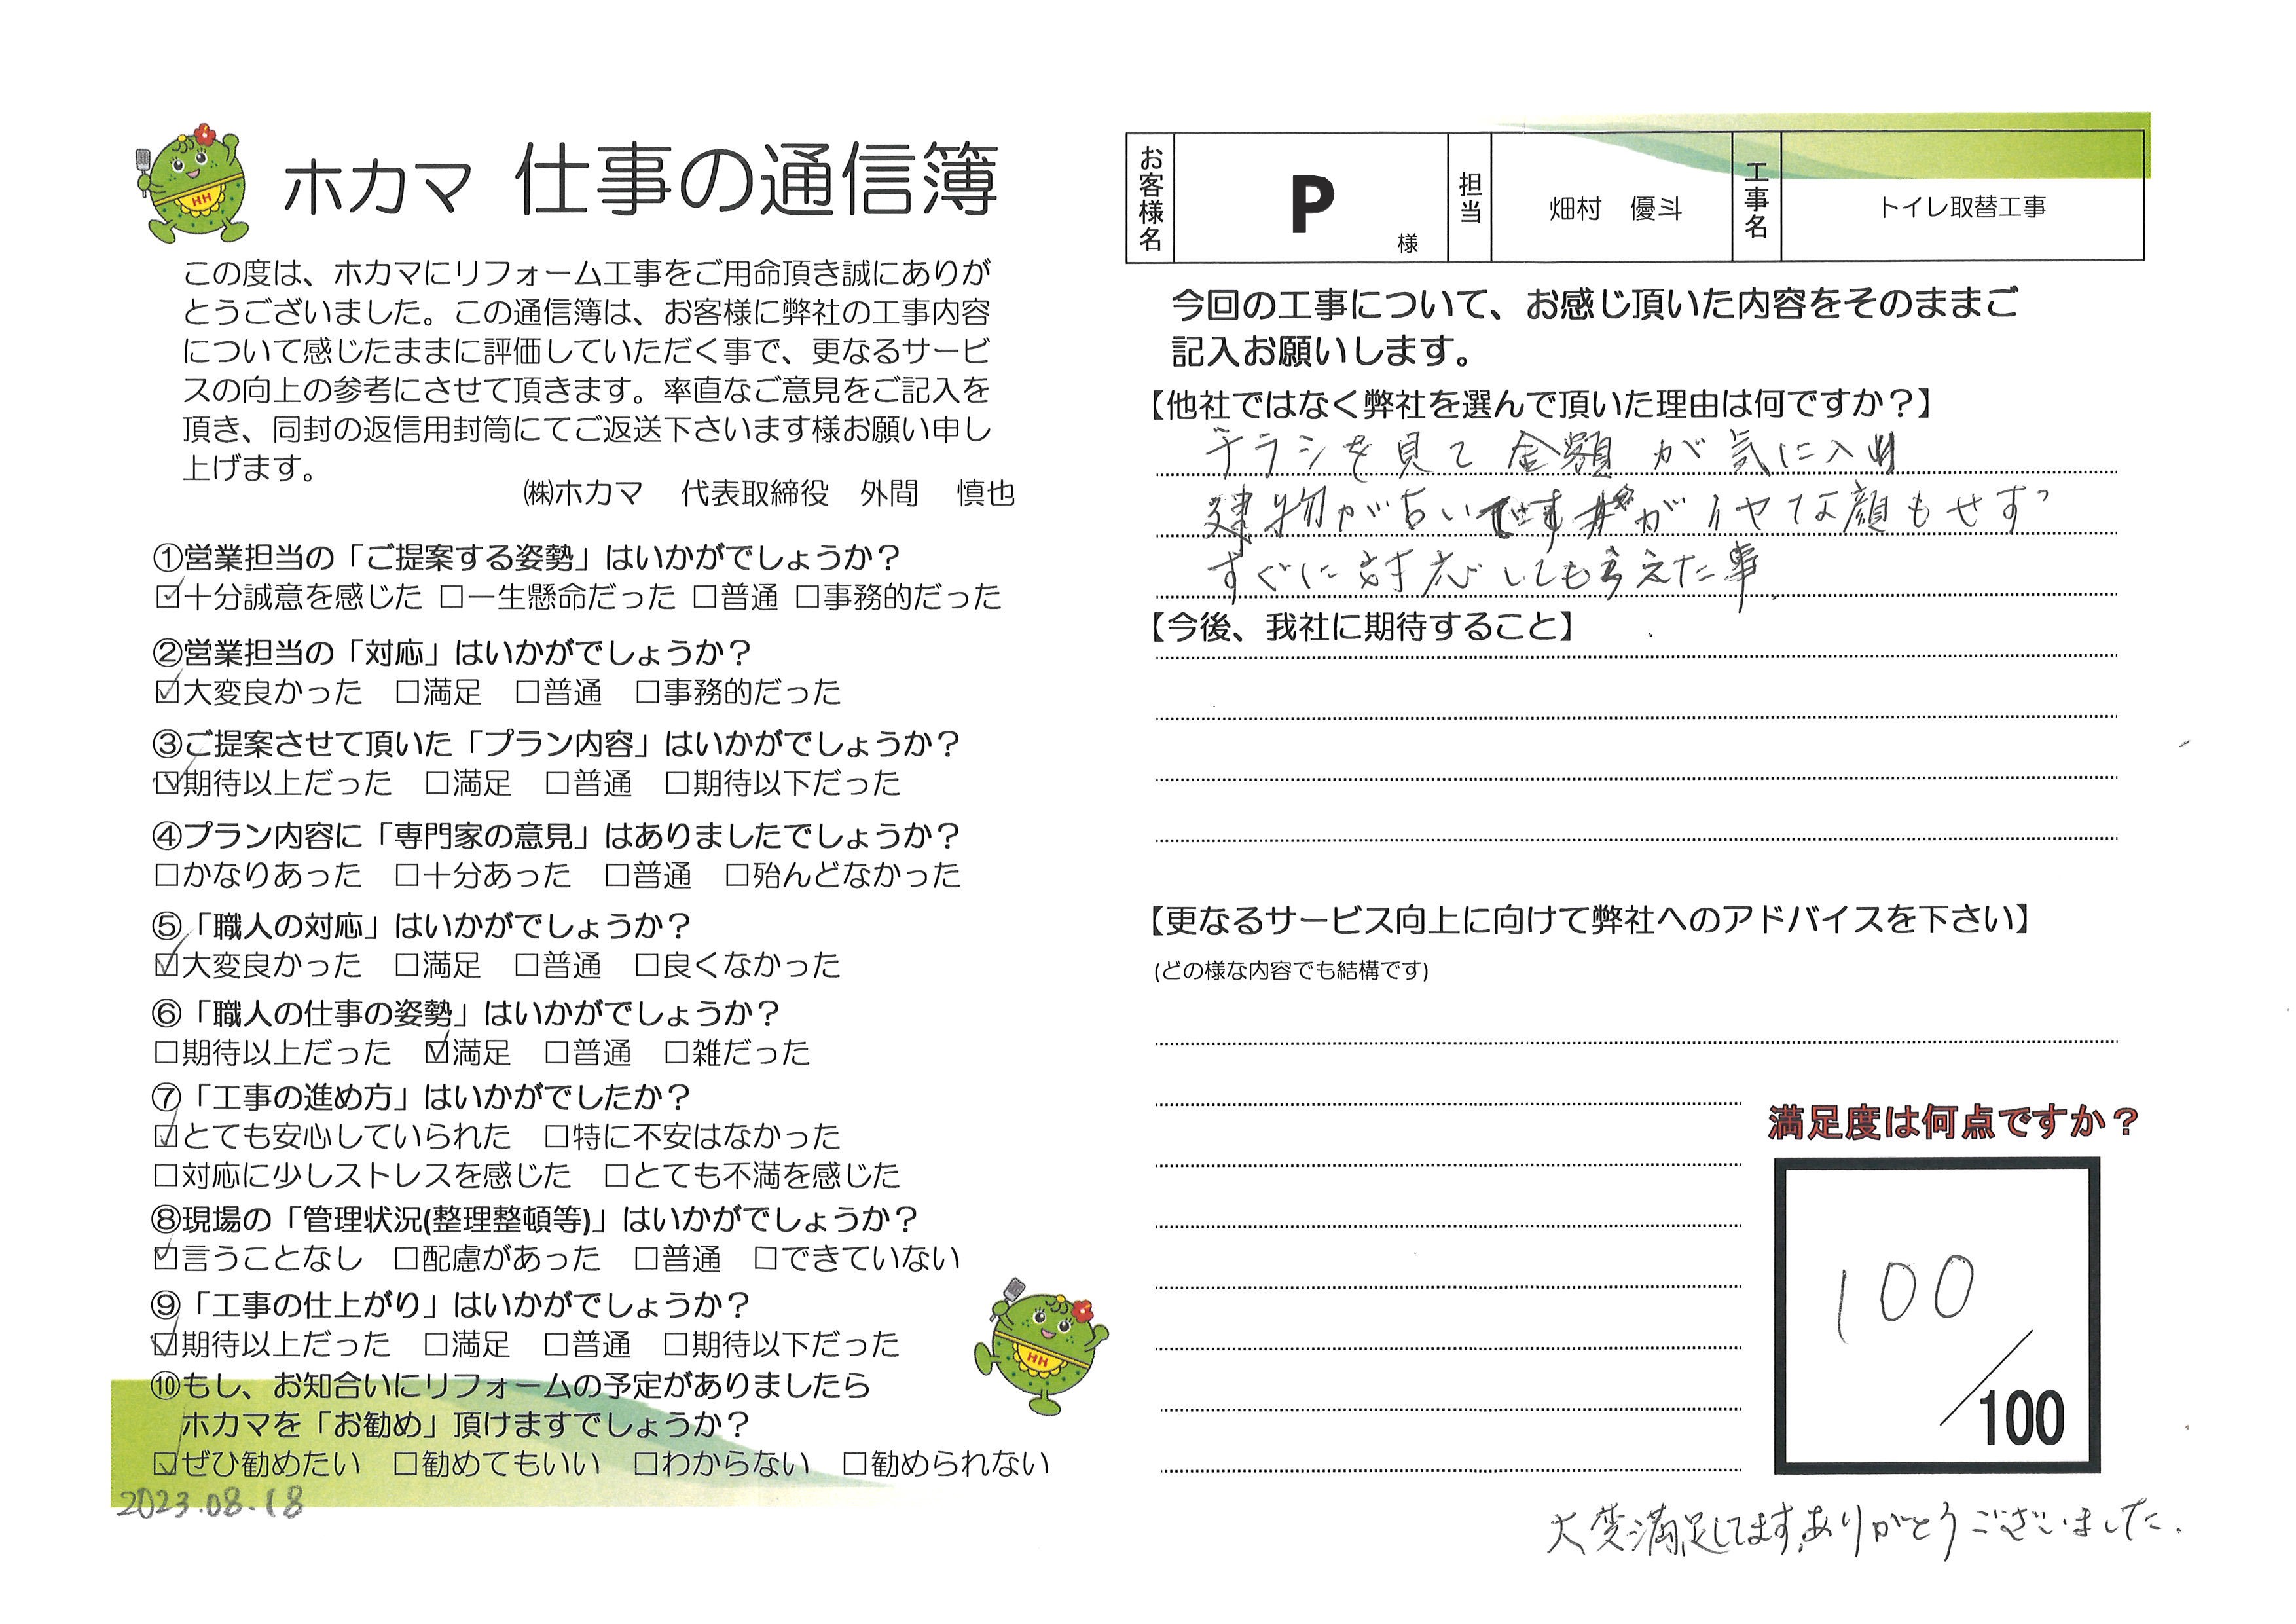 ホカマ 仕事の通信簿
この度は、ホカマにリフォーム工事をご用命頂き誠にありが
とうございました。この通信簿は、お客様に弊社の工事内容
について感じたままに評価していただく事で、更なるサービ
スの向上の参考にさせて頂きます。率直なご意見をご記入を
頂き、同封の返信用封筒にてご返送下さいます様お願い申し
上げます。
㈱ホカマ 代表取締役 外間 慎也
①営業担当の「ご提案する姿勢」はいかがでしょうか？
☑十分誠意を感じた □一生懸命だった □普通 □事務的だった
②営業担当の「対応」はいかがでしょうか？
☑大変良かった □満足 □普通 □事務的だった
③ご提案させて頂いた「プラン内容」はいかがでしょうか？
☑期待以上だった □満足 □普通 □期待以下だった
④プラン内容に「専門家の意見」はありましたでしょうか？
□かなりあった □十分あった □普通 □殆んどなかった
⑤「職人の対応」はいかがでしょうか？
☑大変良かった □満足 □普通 □良くなかった
⑥「職人の仕事の姿勢」はいかがでしょうか？
□期待以上だった ☑満足 □普通 □雑だった
⑦「工事の進め方」はいかがでしたか？
☑とても安心していられた □特に不安はなかった
□対応に少しストレスを感じた □とても不満を感じた
⑧現場の「管理状況(整理整頓等)」はいかがでしょうか？
☑言うことなし □配慮があった □普通 □できていない
⑨「工事の仕上がり」はいかがでしょうか？
☑期待以上だった □満足 □普通 □期待以下だった
⑩もし、お知合いにリフォームの予定がありましたら
ホカマを「お勧め」頂けますでしょうか？
☑ぜひ勧めたい □勧めてもいい □わからない □勧められない
2023.08.18
お客様名 P 様 担当 畑村 優斗 工事名 トイレ取替工事
今回の工事について、お感じ頂いた内容をそのままご
記入お願いします。
【他社ではなく弊社を選んで頂いた理由は何ですか？】
チラシを見て 金額 が 気に入り
建物が古いですがイヤな顔もせず
すぐに対応してもらえた事.
【今後、我社に期待すること】
【更なるサービス向上に向けて弊社へのアドバイスを下さい】
(どの様な内容でも結構です)
満足度は何点ですか？
100
/100
大変満足してます、ありがとうございました.
HH
HH